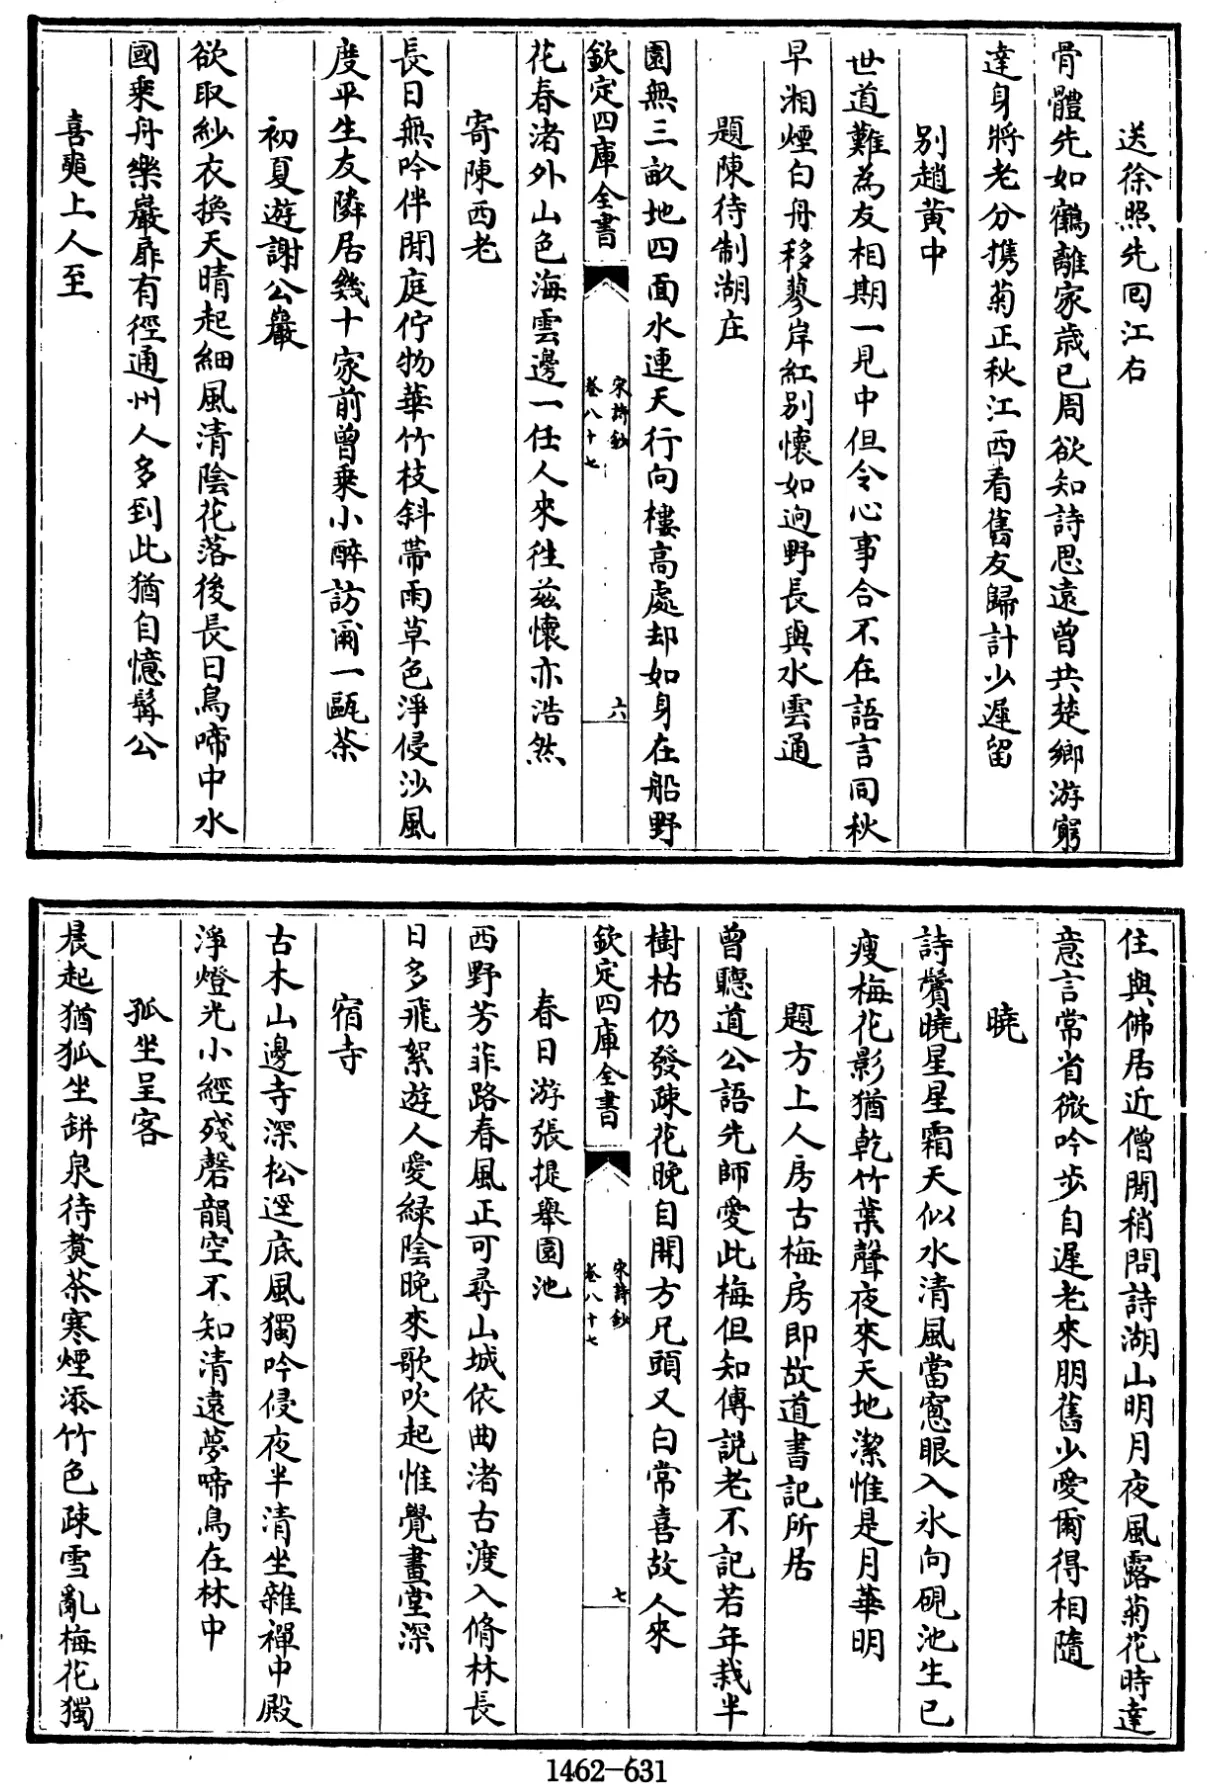 送徐照先囘江右
骨體先如鶴離家歲已周欲知詩思遠曾共楚鄉游窮
達身將老分携菊正秋江西看舊友歸計少遲留
别趙黄中
世道難為友相期一見中但令心事合不在語言同秋
早湘煙白舟移蓼岸紅别懷如逈野長與水雲通
題陳待制湖庄
園無三畝地四面水連天行向樓高處却如身在船野
欽定四庫全書
宋詩鈔
卷八十七
六
花春渚外山色海雲邊一任人來徃兹懷亦浩然
寄陳西老
長日無吟伴閒庭佇物華竹枝斜帶雨草色淨侵沙風
度平生友隣居幾十家前曾乗小醉訪爾一甌茶
初夏遊謝公巖
欲取紗衣換天晴起細風清陰花落後長日鳥啼中水
國乗舟樂巖扉有徑通州人多到此猶自憶髯公
喜奭上人至
住與佛居近僧閒稍問詩湖山明月夜風露菊花時達
意言常省微吟步自遲老來朋舊少愛爾得相隨
曉
詩鬢曉星星霜天似水清風當窓眼入氷向硯池生已
瘦梅花影猶乾竹葉聲夜來天地潔惟是月華明
題方上人房古梅房即故道書記所居
曾聽道公語先師愛此梅但知傳説老不記若年栽半
樹枯仍發疎花晚自開方兄頭又白常喜故人來
欽定四庫全書
宋詩鈔
卷八十七
七
春日游張提舉園池
西野芳菲路春風正可尋山城依曲渚古渡入脩林長
日多飛絮遊人愛緑陰晚來歌吹起惟覺畫堂深
宿寺
古木山邊寺深松逕底風獨吟侵夜半清坐雜禪中殿
淨燈光小經殘磬韻空不知清遠夢啼鳥在林中
孤坐呈客
晨起猶孤坐缾泉待煑茶寒煙添竹色疎雪亂梅花獨
1462-631